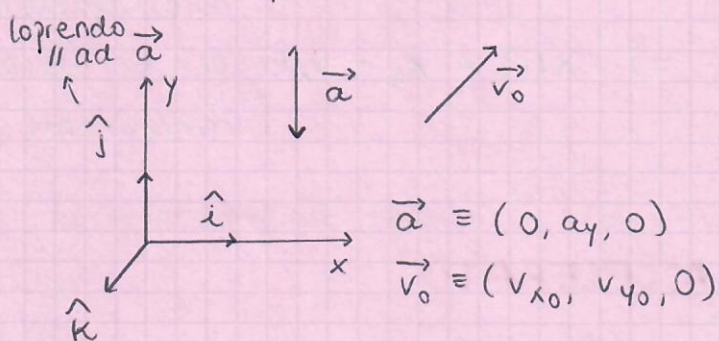 lo prendo
// ad a⃗
y
ĵ
a⃗
v⃗₀
î
x
k̂
a⃗ ≡ (0, ay, 0)
v⃗₀ ≡ (vx₀, vy₀, 0)